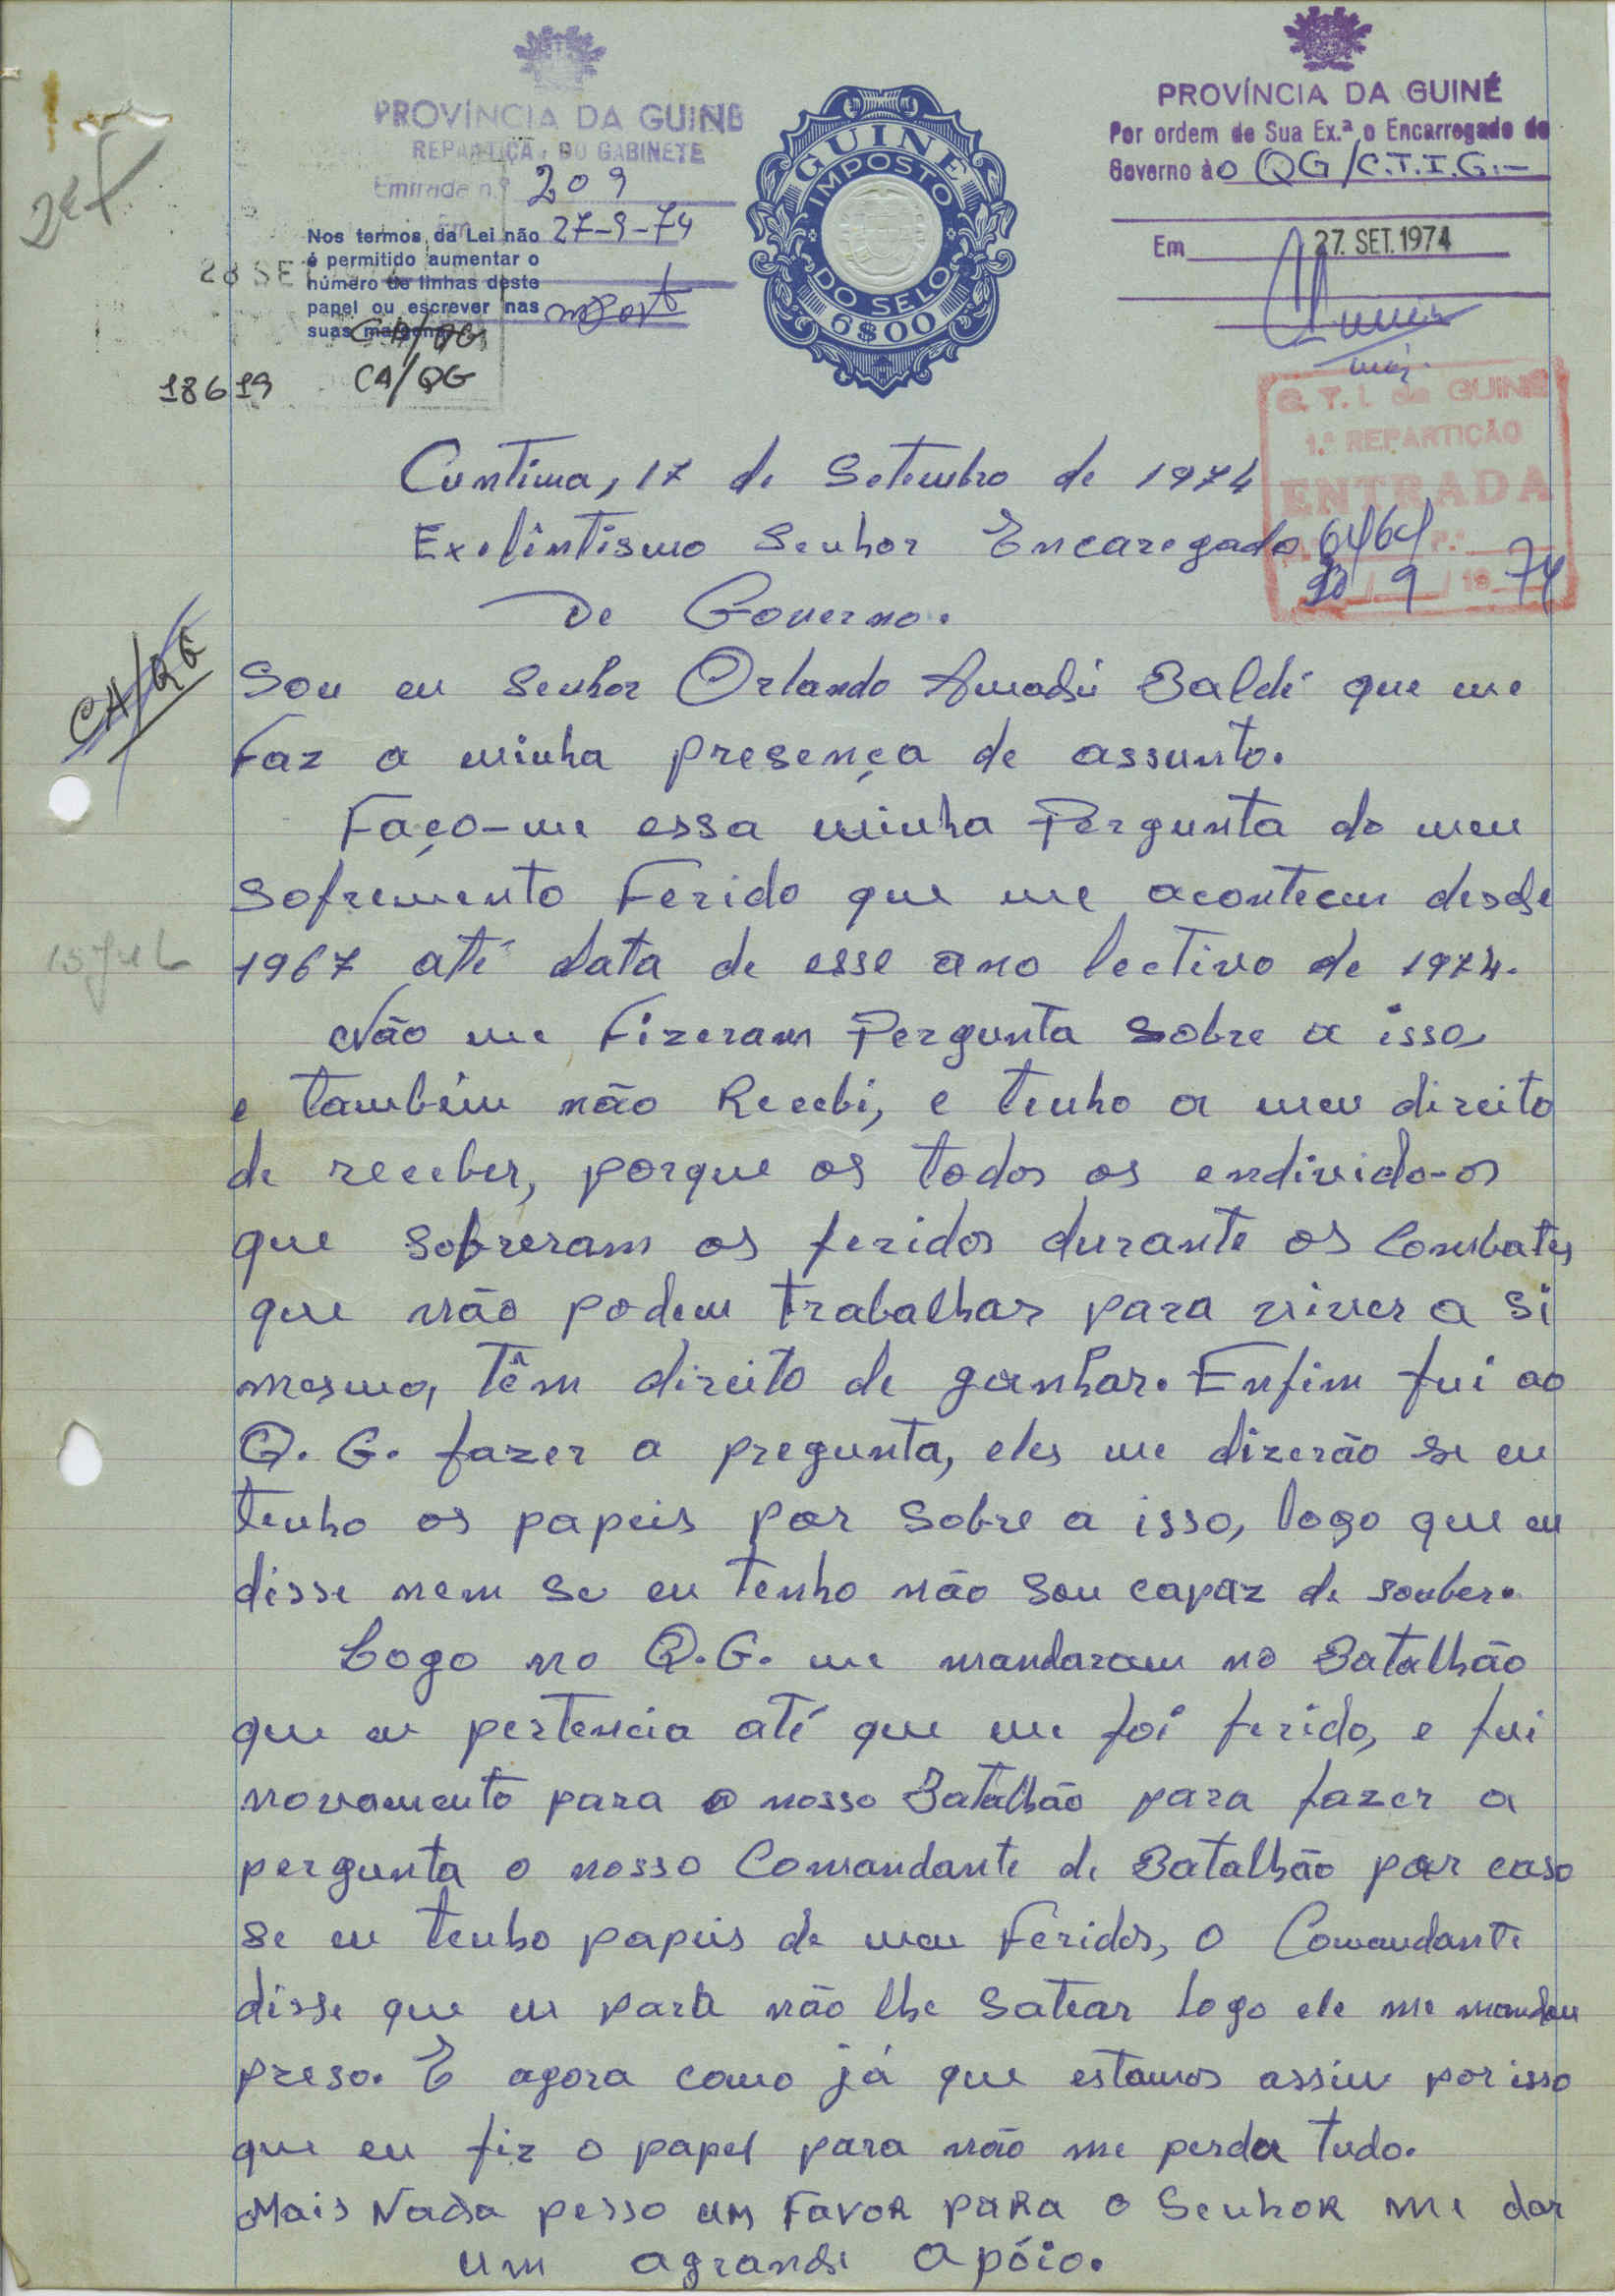 PROVÍNCIA DA GUINÉ
REPARTIÇÃO DO GABINETE
Entrada n.º 209
Em 27-9-74
Nos termos da Lei não
é permitido aumentar o
número de linhas deste
papel ou escrever nas
suas margens
28 SET
CA/QG
CA/QG
18619
GUINÉ
IMPOSTO
DO SELO
6$00
PROVÍNCIA DA GUINÉ
Por ordem de Sua Ex.ª o Encarregado do
Governo à o QG/C.T.I.G.-
Em 27. SET. 1974
C. T. I. da GUINÉ
1.ª REPARTIÇÃO
ENTRADA
9 / 1974
CA/QG
Cuntima, 17 de Setembro de 1974
Exelintismo Senhor Encaregado
De Governo.
Sou eu Senhor Orlando Amadú Baldé que me
Faz a minha presença de assunto.
Faço-me essa minha Pergunta do meu
Sofremento Ferido que me aconteceu desde
1967 até data de esse ano lectivo de 1974.
Não me Fizeram Pergunta Sobre a isso,
e também não Recebi, e tenho a meu direito
de receber, porque os todos os endivido-os
que Sofreram os feridos durante os Combates,
que não podem trabalhar para viver a si
mesmo, têm direito de ganhar. Enfim fui ao
Q. G. fazer a pregunta, eles me dizerão se eu
tenho os papeis por Sobre a isso, logo que eu
disse nem se eu tenho não Sou capaz de souber.
Logo no Q.G. me mandaram no Batalhão
que eu pertencia até que me foi ferido, e fui
novamento para o nosso Batalhão para fazer a
pergunta o nosso Comandante de Batalhão por caso
se eu tenho papeis de meu Feridos, o Comandante
disse que eu para não lhe Satear logo ele me mandou
preso. E agora como já que estamos assim por isso
que eu fiz o papel para não me perder tudo.
Mais Nada pesso um Favor para o Senhor me dar
um agrande apóio.